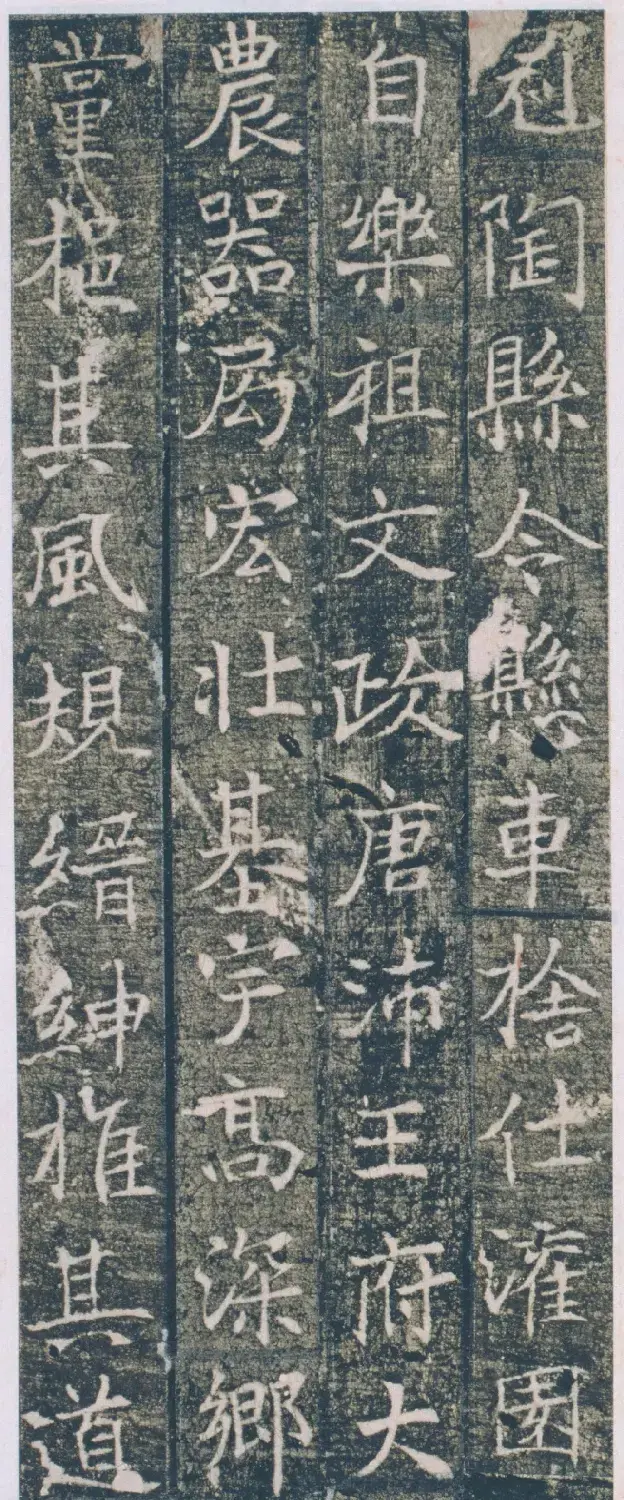 陶縣令懸車捨仕灌園
自樂祖文政唐沛王府大
農器局宏壯基宇高深鄉
黨挹其風規縉紳推其道